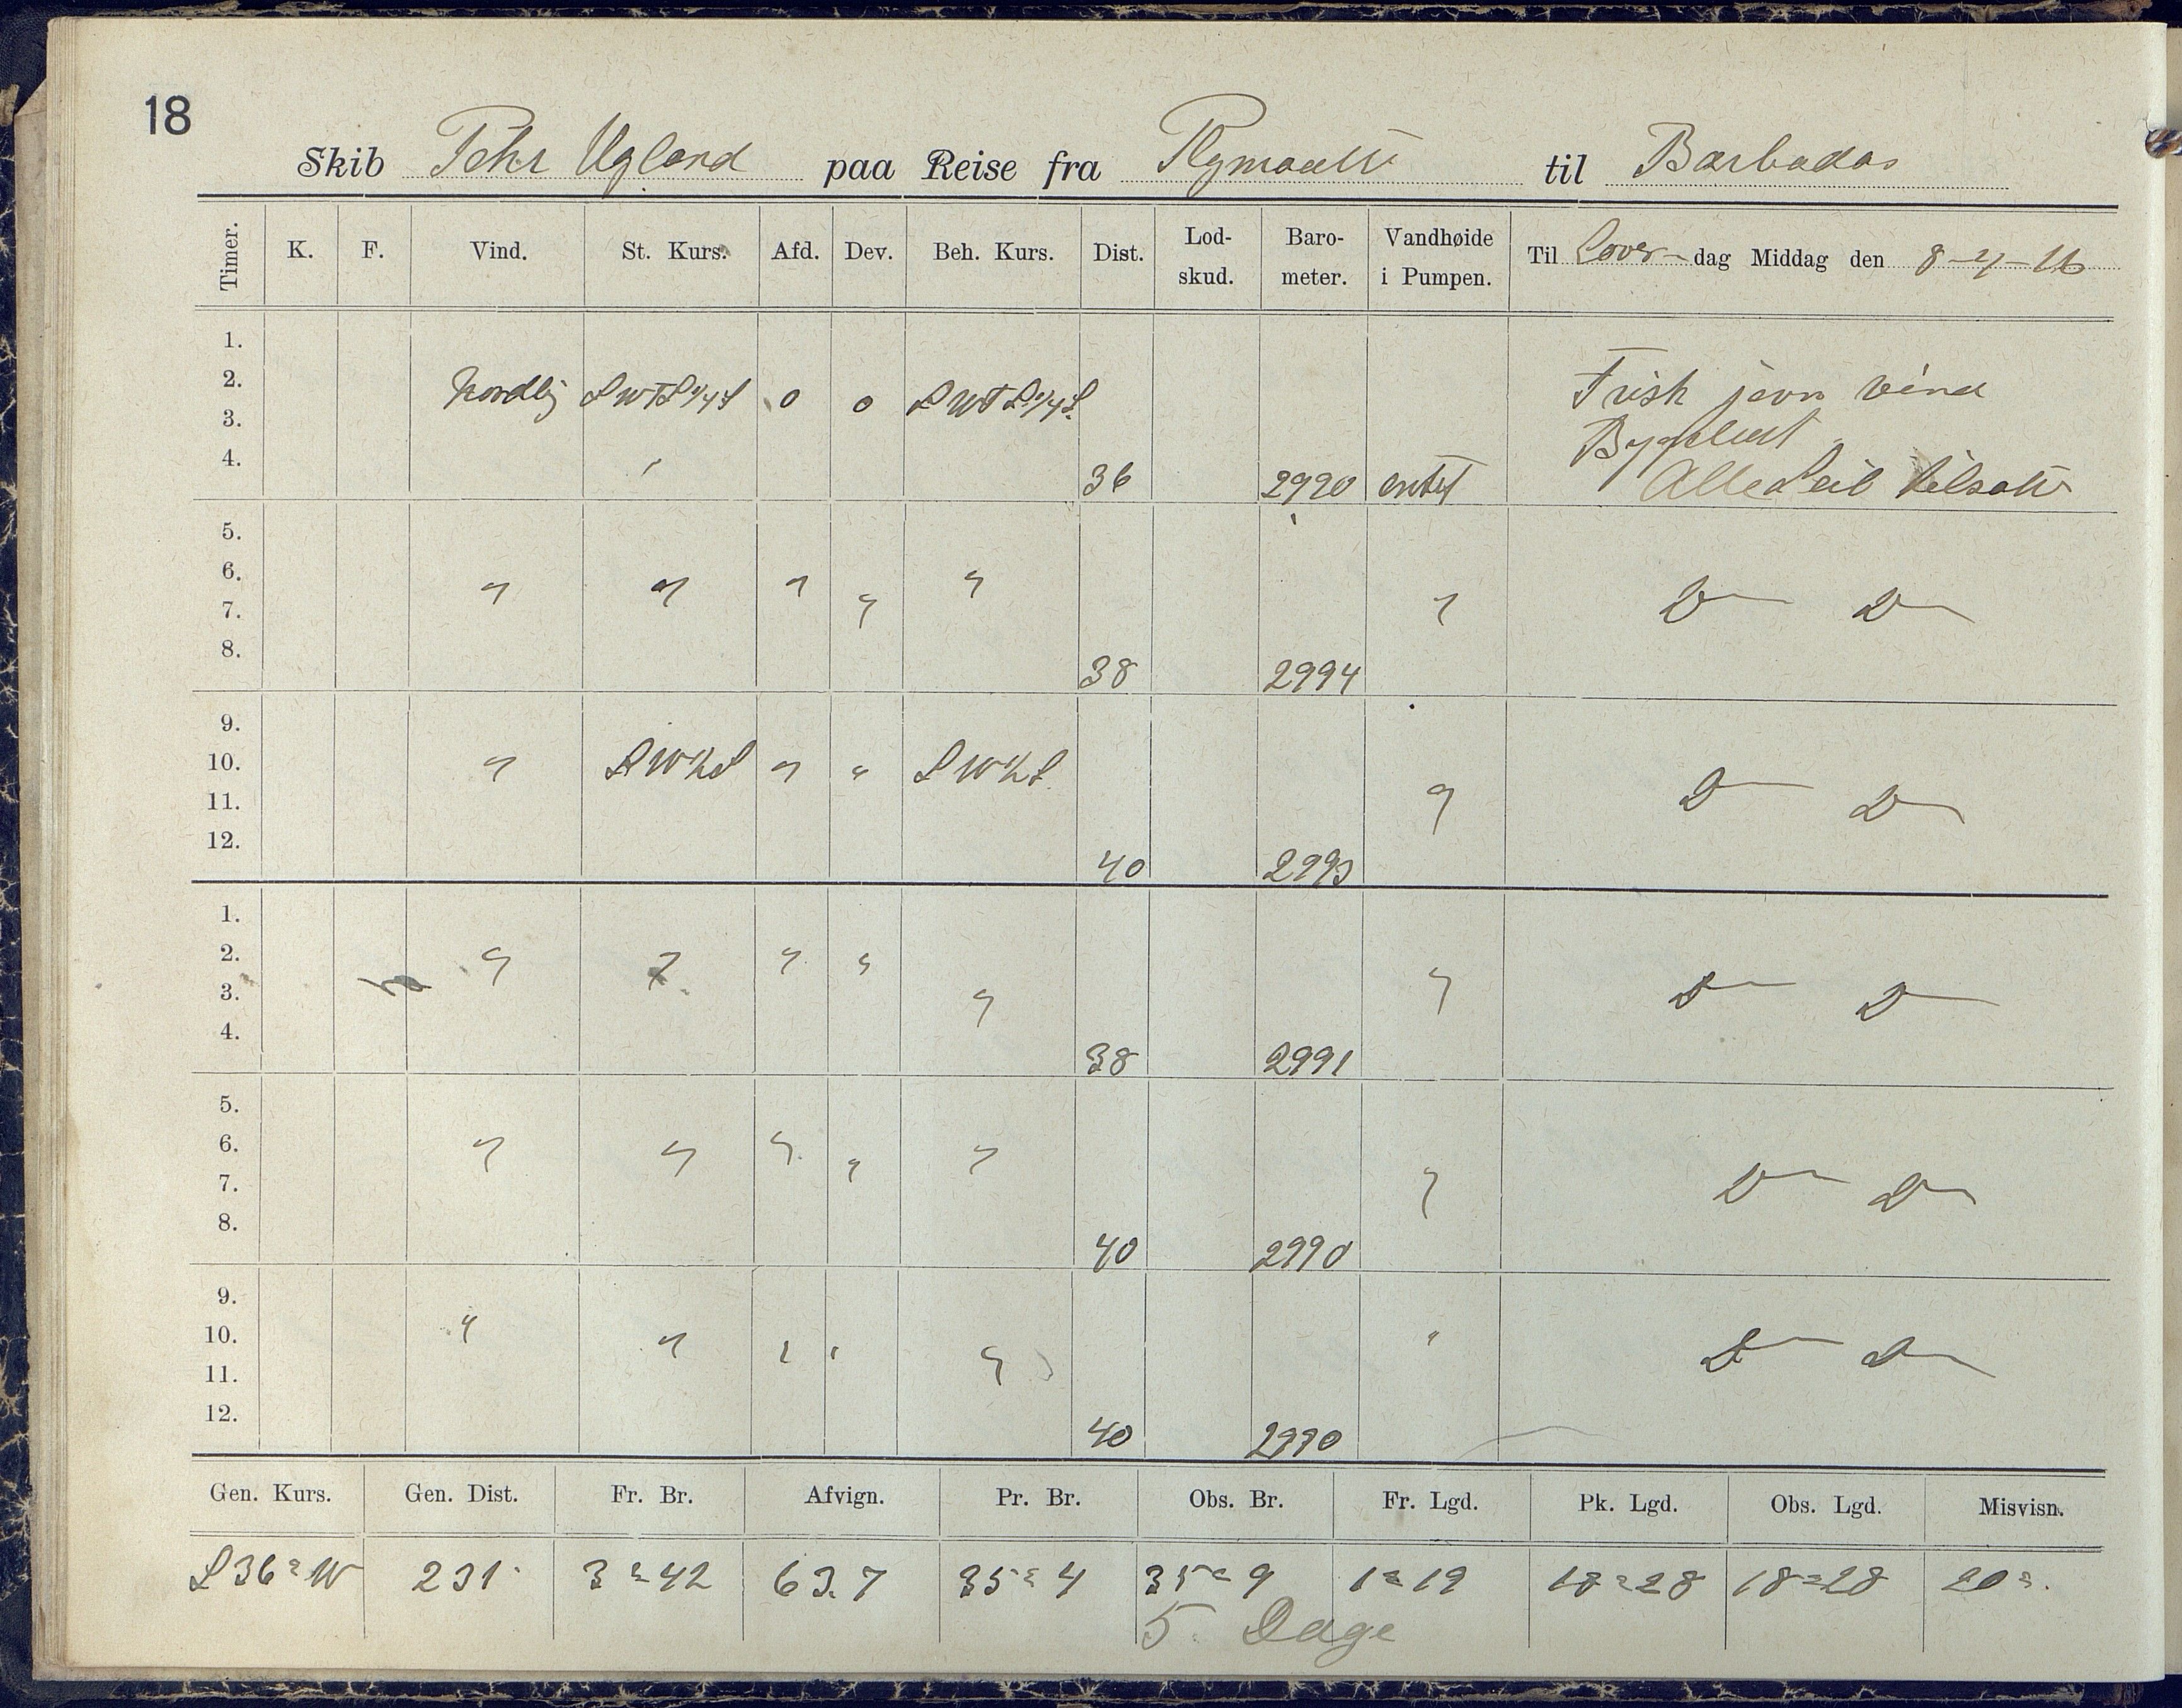 18
Skib Pehr Ugland paa Reise fra Plymouth til Barbados
Timer. K. F. Vind. St. Kurs. Afd. Dev. Beh. Kurs. Dist. Lod-skud. Baro-meter. Vandhøide i Pumpen. Til Löver-dag Middag den 8-4-16
1.
2. Nordlig SWTS1/4S 0 0 SWTS1/4S Frisk jevn vind
3. Bygeluft
4. 36 2990 intet Alle Seil tilsatt
5.
6. " " " " "
7. " D— D—
8. 38 2994
9.
10. " SWKS " " SWKS
11. " D— D—
12. 40 2993
1.
2. " " " "
3. " " D— D—
4. 38 2991
5.
6. " " " " "
7. " D— D—
8. 40 2990
9.
10. " " " " " "
11. D— D—
12. 40 2990
Gen. Kurs. Gen. Dist. Fr. Br. Afvign. Pr. Br. Obs. Br. Fr. Lgd. Pk. Lgd. Obs. Lgd. Misvisn.
S36°W 231 3°42 63.7 35°4 35°9 1°19 18°28 18°28 20°
5 Dage